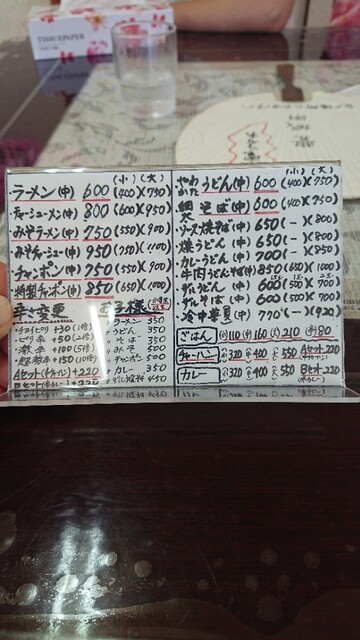 TISSUEPAPER
(小)(大)
ラーメン(中) 600 (400)(750)
・チャーシューメン(中) 800 (600)(950)
・みそラーメン(中) 750 (550)(900)
・みそチャーシュー(中) 950 (750)(1100)
・チャンポン(中) 750 (550)(900)
・特製チャンポン(中) 850 (650)(1000)
辛さ変更
・チョイピリ +30 (1倍)
・ピリ辛 +50 (2倍)
・激辛 +100 (5倍)
・超激辛 +150 (10倍)
Aセット(半チャーハン)+220
Bセット(半カレー)+220
お子様
・ラーメン 350
・うどん 350
・そば 350
・みそ 500
・チャンポン 500
・カレー 350
(小)(大)
やわ かた うどん(中) 600 (400)(750)
細 太 そば(中) 600 (400)(750)
・ソース焼そば(中) 650 (-)(800)
・焼うどん(中) 650 (-)(800)
・カレーうどん(中) 700 (-)(850)
・牛肉うどんそば(中) 850 (650)(1000)
・ざるうどん(中) 600 (500)(700)
・ざるそば(中) 600 (500)(700)
・冷中華夏(中) 770 (-)(920)
ごはん (小)110 (中)160 (大)210 (半)80
チャーハン (小)320 (中)400 (大)550 Aセット220 (半チャーハン)
カレー (小)320 (中)400 (大)550 Bセット220 (半カレー)